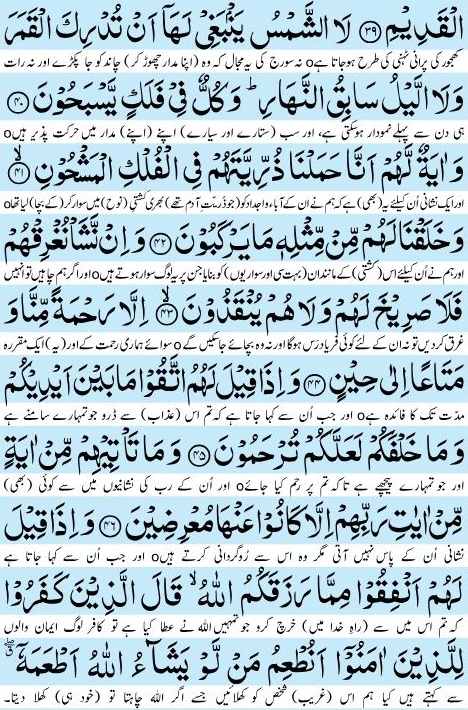 الْقَدِيْمِ ﴿۳۹﴾ لَا الشَّمْسُ يَنْۢبَغِيْ لَهَاۤ اَنْ تُدْرِكَ الْقَمَرَ
کھجور کی پرانی ٹہنی کی طرح ہوجاتا ہےo نہ سورج کی یہ مجال کہ وہ (اپنا مدار چھوڑ کر) چاند کو جا پکڑے اور نہ رات
وَلَا الَّيْلُ سَابِقُ النَّهَارِ ؕ وَكُلٌّ فِيْ فَلَكٍ يَّسْبَحُوْنَ ﴿۴۰﴾
ہی دن سے پہلے نمودار ہوسکتی ہے، اور سب (ستارے اور سیارے) اپنے (اپنے) مدار میں حرکت پذیر ہیںo
وَاٰيَةٌ لَّهُمْ اَنَّا حَمَلْنَا ذُرِّيَّتَهُمْ فِي الْفُلْكِ الْمَشْحُوْنِ ﴿۴۱﴾ۙ
اور ایک نشانی اُن کیلئے یہ (بھی) ہے کہ ہم نے ان کے آباء و اجداد کو (جو ذُریّت آدم تھے) بھری کشتیِ (نوح) میں سوار کر (کے بچا) لیا تھاo
وَخَلَقْنَا لَهُمْ مِّنْ مِّثْلِهٖ مَا يَرْكَبُوْنَ ﴿۴۲﴾ وَاِنْ نَّشَاْ نُغْرِقْهُمْ
اور ہم نے اُن کیلئے اس (کشتی) کے مانندان (بہت سی اور سواریوں) کو بنایا جن پر یہ لوگ سوار ہوتے ہیںo اور اگر ہم چاہیں تو انہیں
فَلَا صَرِيْخَ لَهُمْ وَلَا هُمْ يُنْقَذُوْنَ ﴿۴۳﴾ۙ اِلَّا رَحْمَةً مِّنَّا وَ
غرق کردیں تو نہ ان کے لئے کوئی فریاد رَس ہوگا اور نہ وہ بچائے جاسکیں گےo سوائے ہماری رحمت کے اور (یہ) ایک مقررہ
مَتَاعًا اِلٰى حِيْنٍ ﴿۴۴﴾ وَاِذَا قِيْلَ لَهُمُ اتَّقُوْا مَا بَيْنَ اَيْدِيْكُمْ
مدّت تک کا فائدہ ہےo اور جب اُن سے کہا جاتا ہے کہ تم اس (عذاب) سے ڈرو جو تمہارے سامنے ہے
وَمَا خَلْفَكُمْ لَعَلَّكُمْ تُرْحَمُوْنَ ﴿۴۵﴾ وَمَا تَاْتِيْهِمْ مِّنْ اٰيَةٍ
اور جو تمہارے پیچھے ہے تاکہ تم پر رحم کیا جائےo اور اُن کے رب کی نشانیوں میں سے کوئی (بھی)
مِّنْ اٰيٰتِ رَبِّهِمْ اِلَّا كَانُوْا عَنْهَا مُعْرِضِيْنَ ﴿۴۶﴾ وَاِذَا قِيْلَ
نشانی اُن کے پاس نہیں آتی مگر وہ اس سے رُوگردانی کرتے ہیںo اور جب اُن سے کہا جاتا ہے
لَهُمْ اَنْفِقُوْا مِمَّا رَزَقَكُمُ اللّٰهُ ۙ قَالَ الَّذِيْنَ كَفَرُوْا
کہ تم اس میں سے (راہِ خدا میں) خرچ کرو جو تمہیں اللہ نے عطا کیا ہے تو کافر لوگ ایمان والوں
لِلَّذِيْنَ اٰمَنُوْۤا اَنُطْعِمُ مَنْ لَّوْ يَشَآءُ اللّٰهُ اَطْعَمَهٗۤ ۖق
سے کہتے ہیں کیا ہم اس (غریب) شخص کو کھلائیں جسے اگر اللہ چاہتا تو (خود ہی) کھلا دیتا۔